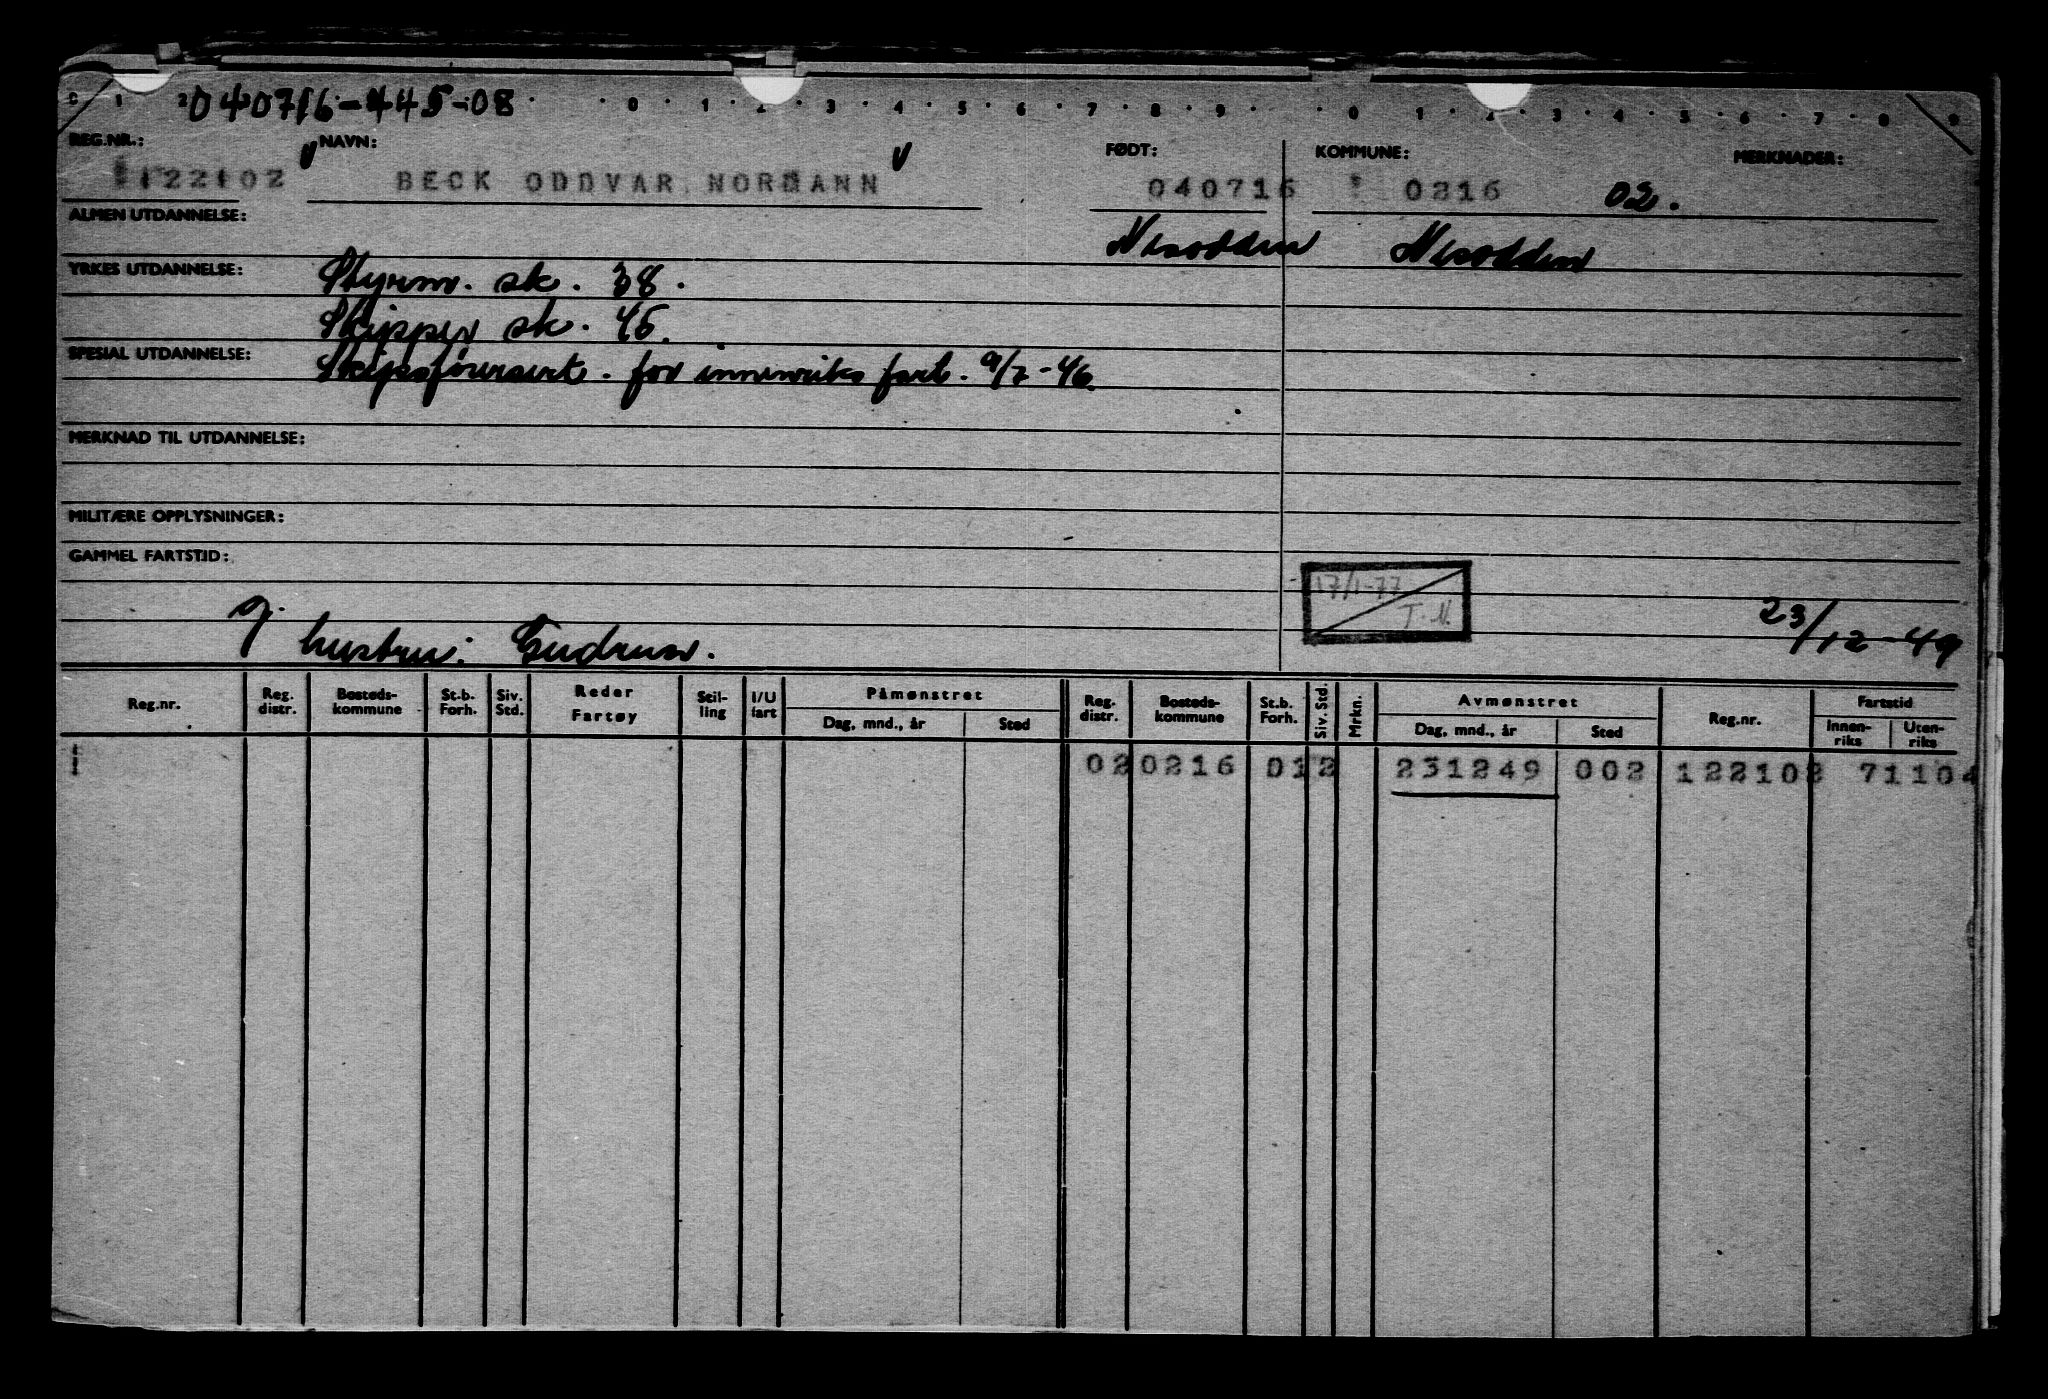 040716-445-08
0 1 2 · 0 · 1 · 2 · 3 · 4 · 5 · 6 · 7 · 8 · 9 · · 0 · 1 · 2 · 3 · 4 · 5 · 6 · 7 · 8 · 9
REG.NR.: NAVN: FØDT: KOMMUNE: MERKNADER:
122102 BECK ODDVAR NORMANN 040716 0216 02.
ALMEN UTDANNELSE: Nesodden Nesodden
YRKES UTDANNELSE: Styrm. sk. 38.
Skipper sk. 45.
SPESIAL UTDANNELSE: Skipsførersert. for innenriks fart. 9/7-46.
MERKNAD TIL UTDANNELSE:
MILITÆRE OPPLYSNINGER:
GAMMEL FARTSTID:
17/1-77
T.N.
23/12-49
G. hustru: Gudrun.
Reg.nr. Reg. distr. Bosteds-kommune St.b. Forh. Siv. Std. Reder Fartøy Stil-ling I/U fart Påmønstret Dag, mnd., år Sted Reg. distr. Bosteds-kommune St.b. Forh. Siv. Std. Mrkn. Avmønstret Dag, mnd., år Sted Reg.nr. Fartstid Innen-riks Uten-riks
02 0216 012 231249 002 122102 71104